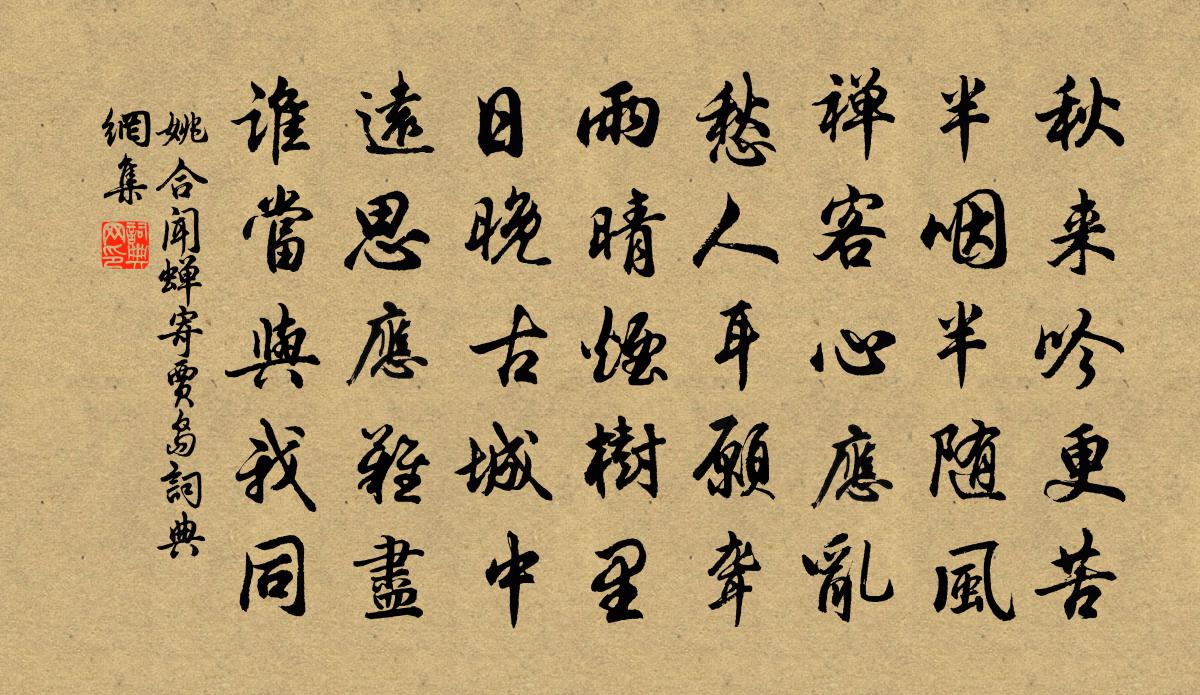 秋来吟更苦
半咽半随風
禅客心應亂
愁人耳願聾
雨晴煙樹里
日晚古城中
遠思應難盡
誰當與我同
姚合聞蝉寄賈島詞典
網集
詞典
网印